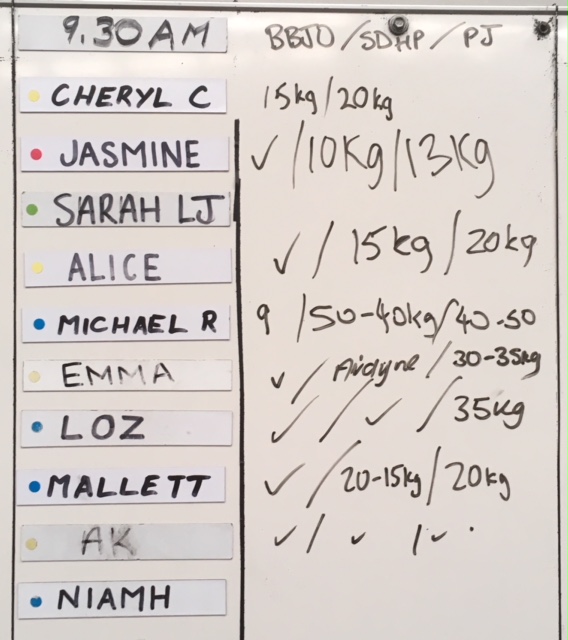 9.30AM BBJO / SDHP / PJ
CHERYL C 15kg/20kg
JASMINE ✓ /10Kg/13Kg
SARAH LJ
ALICE ✓ / 15kg / 20kg
MICHAEL R 9 /50-40kg/40-50
EMMA ✓ / Airdyne / 30-35kg
LOZ ✓ / ✓ / 35kg
MALLETT ✓ / 20-15kg / 20kg
AK ✓ / ✓ / ✓
NIAMH